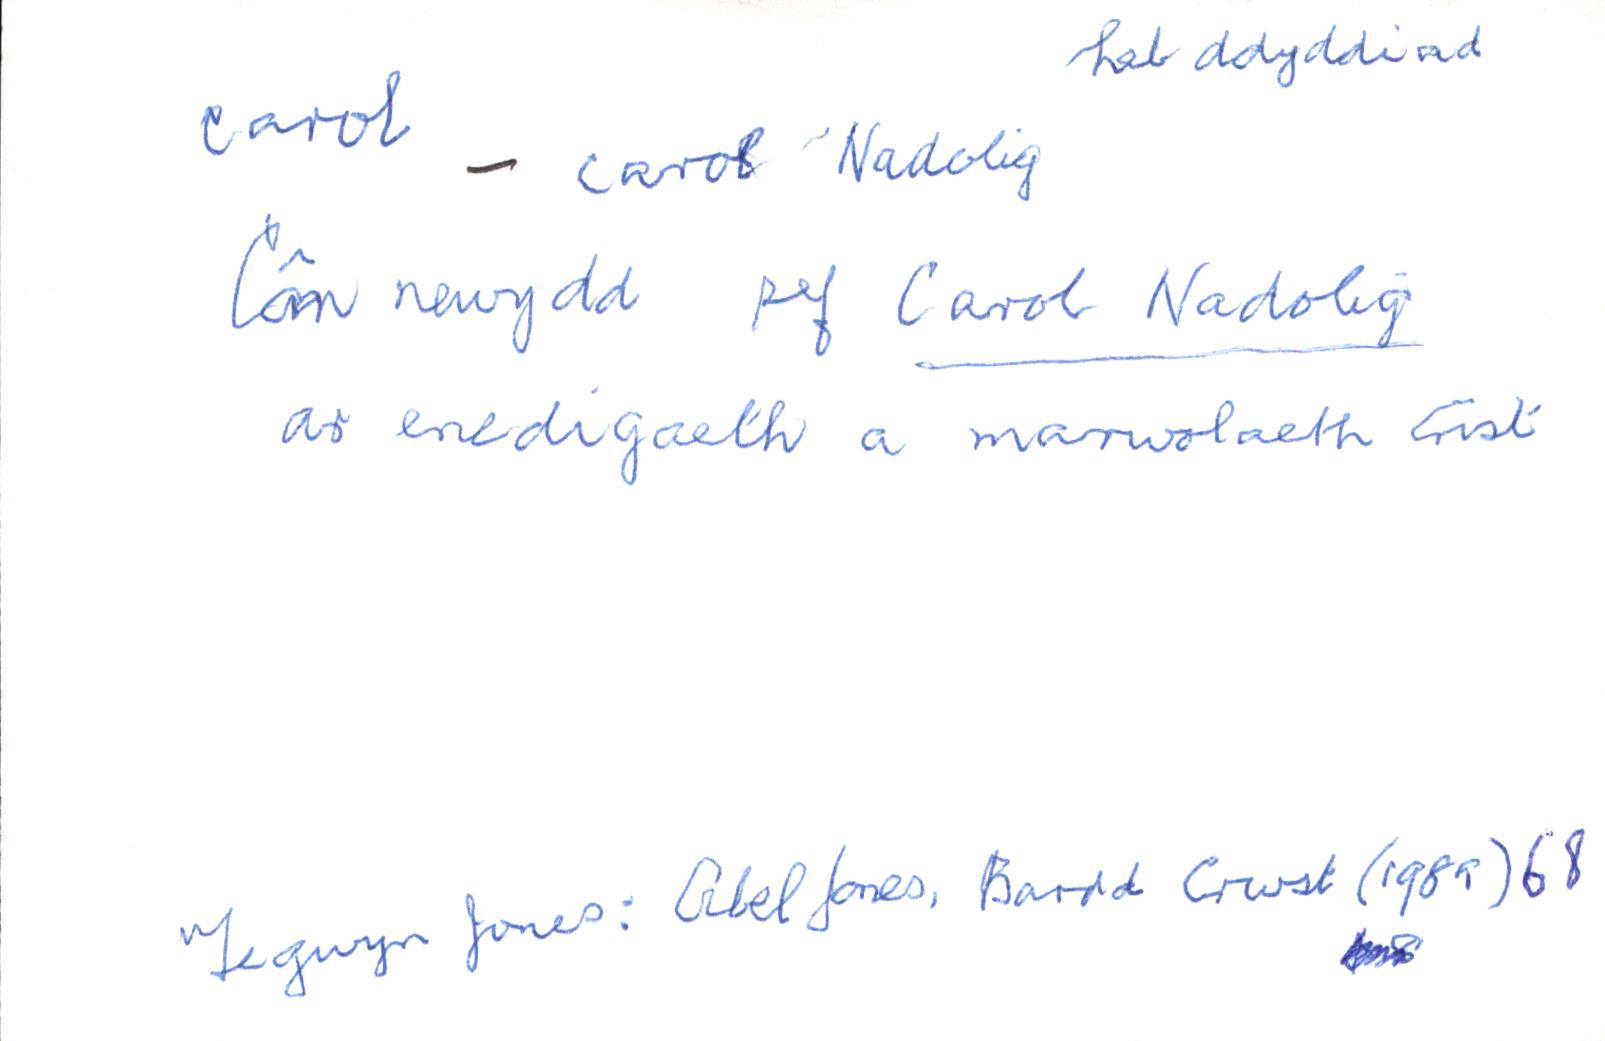 heb ddyddiad
carol
– carol Nadolig
Cân newydd sef Carol Nadolig
ar enedigaeth a marwolaeth Crist
Tegwyn Jones: Abel Jones, Bardd Crwst (1989) 68